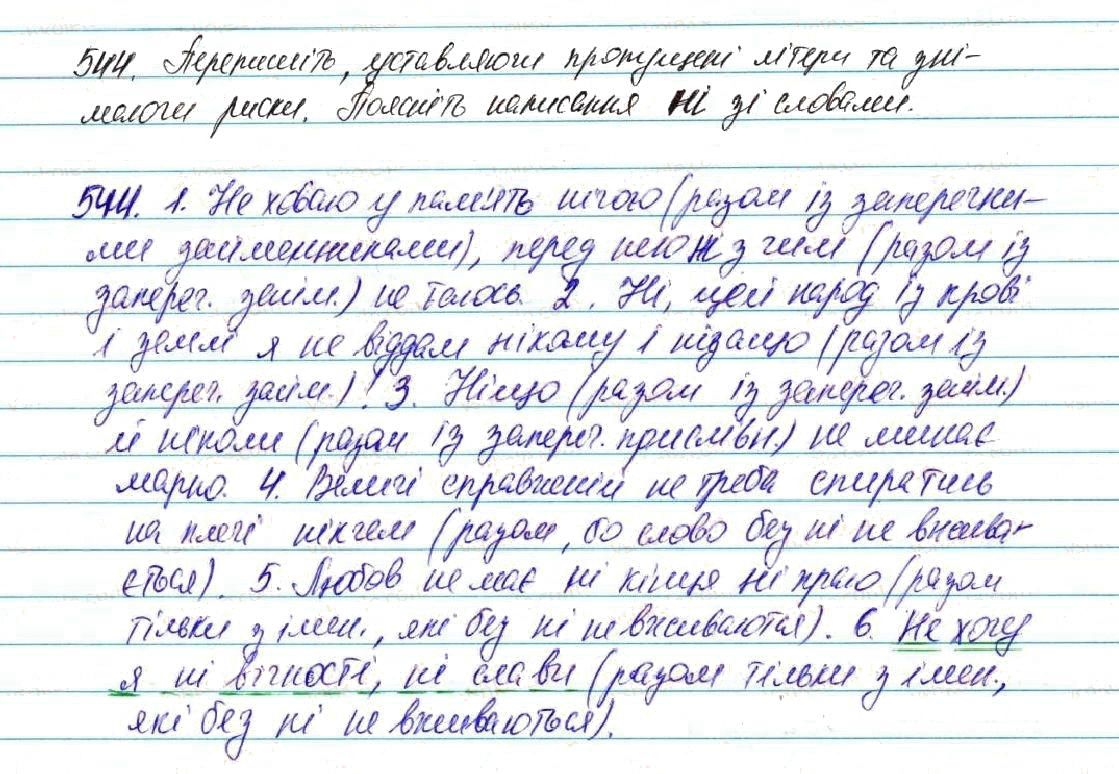 544. Перепишіть, уставляючи пропущені літери та зні-
маючи риски. Поясніть написання ні зі словами.
544. 1. Не ховаю у пам'ять нічого (разом із заперечни-
ми займенниками), перед ніч з чим (разом із
запереч. займ.) не таюсь. 2. Ні, цей народ із крові
і землі я не віддам нікому і нізащо (разом із
запереч. займ.)! 3. Ніщо (разом із запереч. займ.)
й ніколи (разом із запереч. прислівн.) не минає
марно. 4. Величі справжній не треба спиратись
на плечі нікчем (разом, бо слово без ні не вжива-
ється). 5. Любов не має ні кінця ні краю (разом
тільки з імен., які без ні не вживаються). 6. Не хочу
я ні вічності, ні слави (разом тільки з імен.,
які без ні не вживаються).